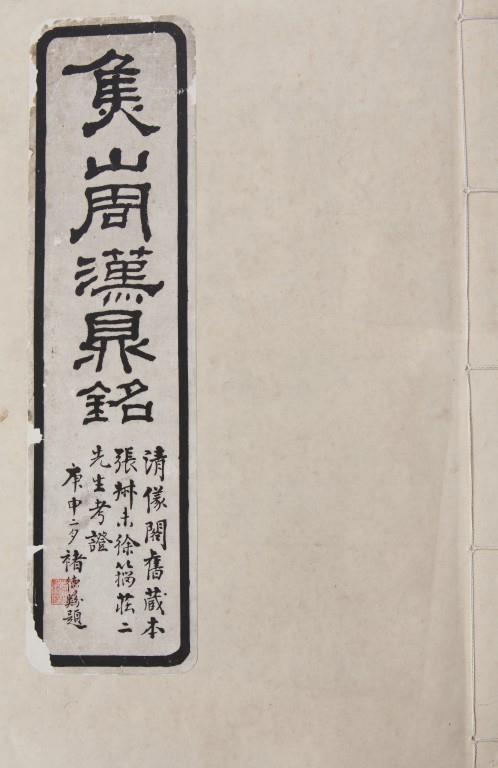 焦山周漢鼎銘
清儀閣舊藏本
張叔未徐籀莊二
先生考證
庚申二夕褚德彝題